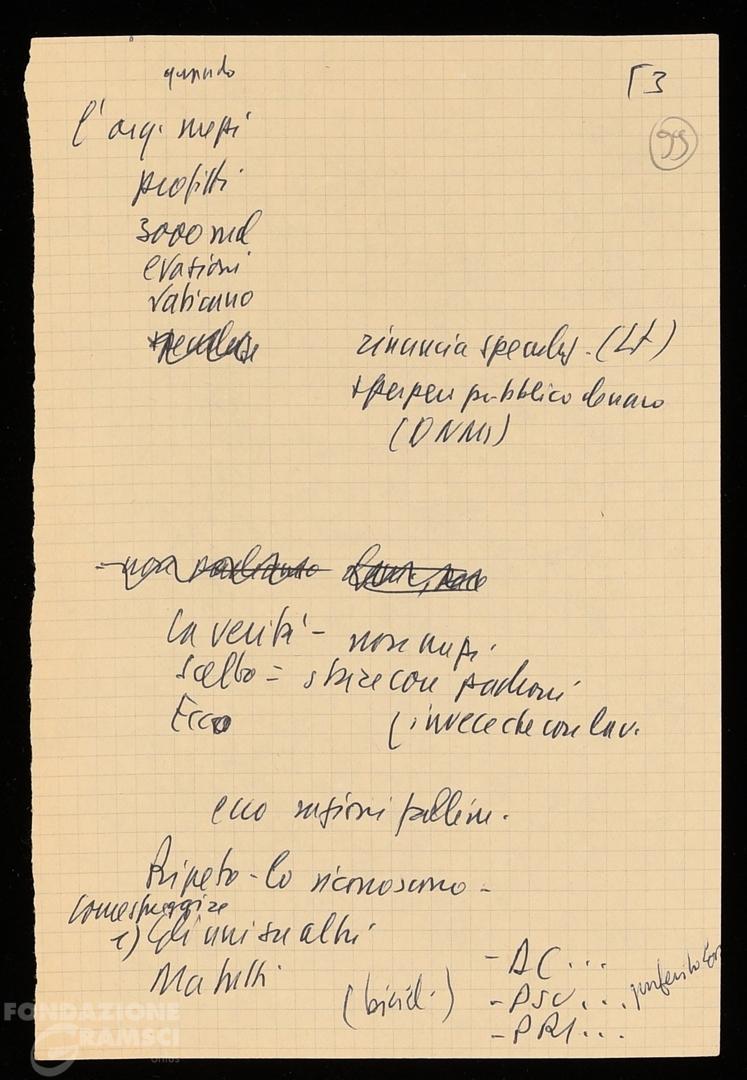 quando
Γ3
99
l'arg. mezzi
profitti
3000 md
evasioni
Vaticano
rinuncia specul. (Lt)
sperperi pubblico denaro
(ONMI)
- non
La verità - non mezzi.
Scelba = stare con padroni
Ecco (invece che con lav.
ecco ragioni fallim.
Ripeto - Lo riconoscono -
Come sfuggire
1) Gli uni su altri
Ma tutti
(bicicl.)
- DC...
- PSU... preferito
- PRI...
FONDAZIONE
GRAMSCI
onlus